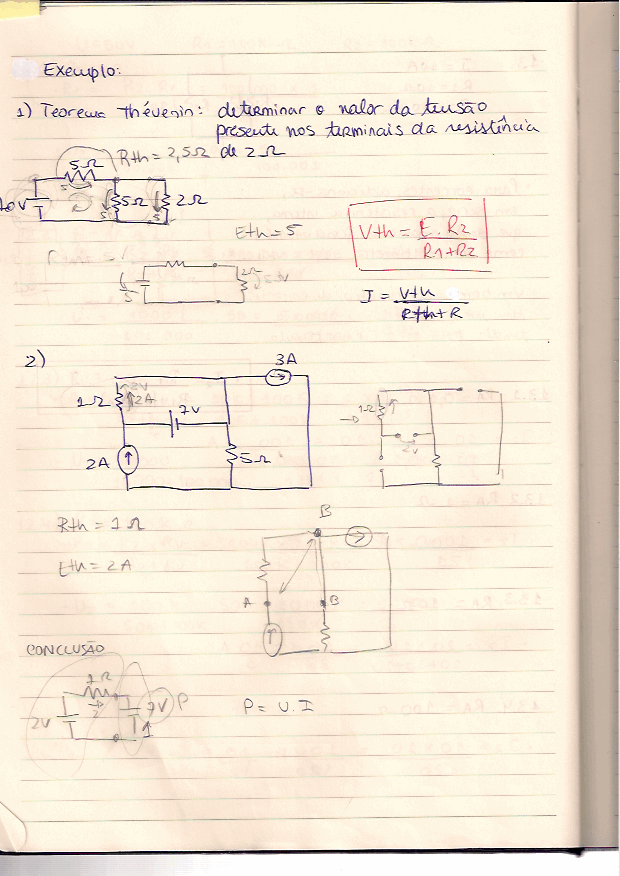 Exemplo:
1) Teorema Thévenin: determinar o valor da tensão
presente nos terminais da resistência
Rth = 2,5Ω de 2Ω
5Ω
5Ω
2Ω
5
5
Eth = 5
Vth = E . R2
R1+R2
2Ω
5
I = Vth
Rth + R
2)
3A
2V
1Ω
2A
7V
2A
5Ω
1Ω
2V
Rth = 1Ω
Eth = 2A
B
A
B
CONCLUSÃO
1Ω
2V
7V
P
I
P = U.I